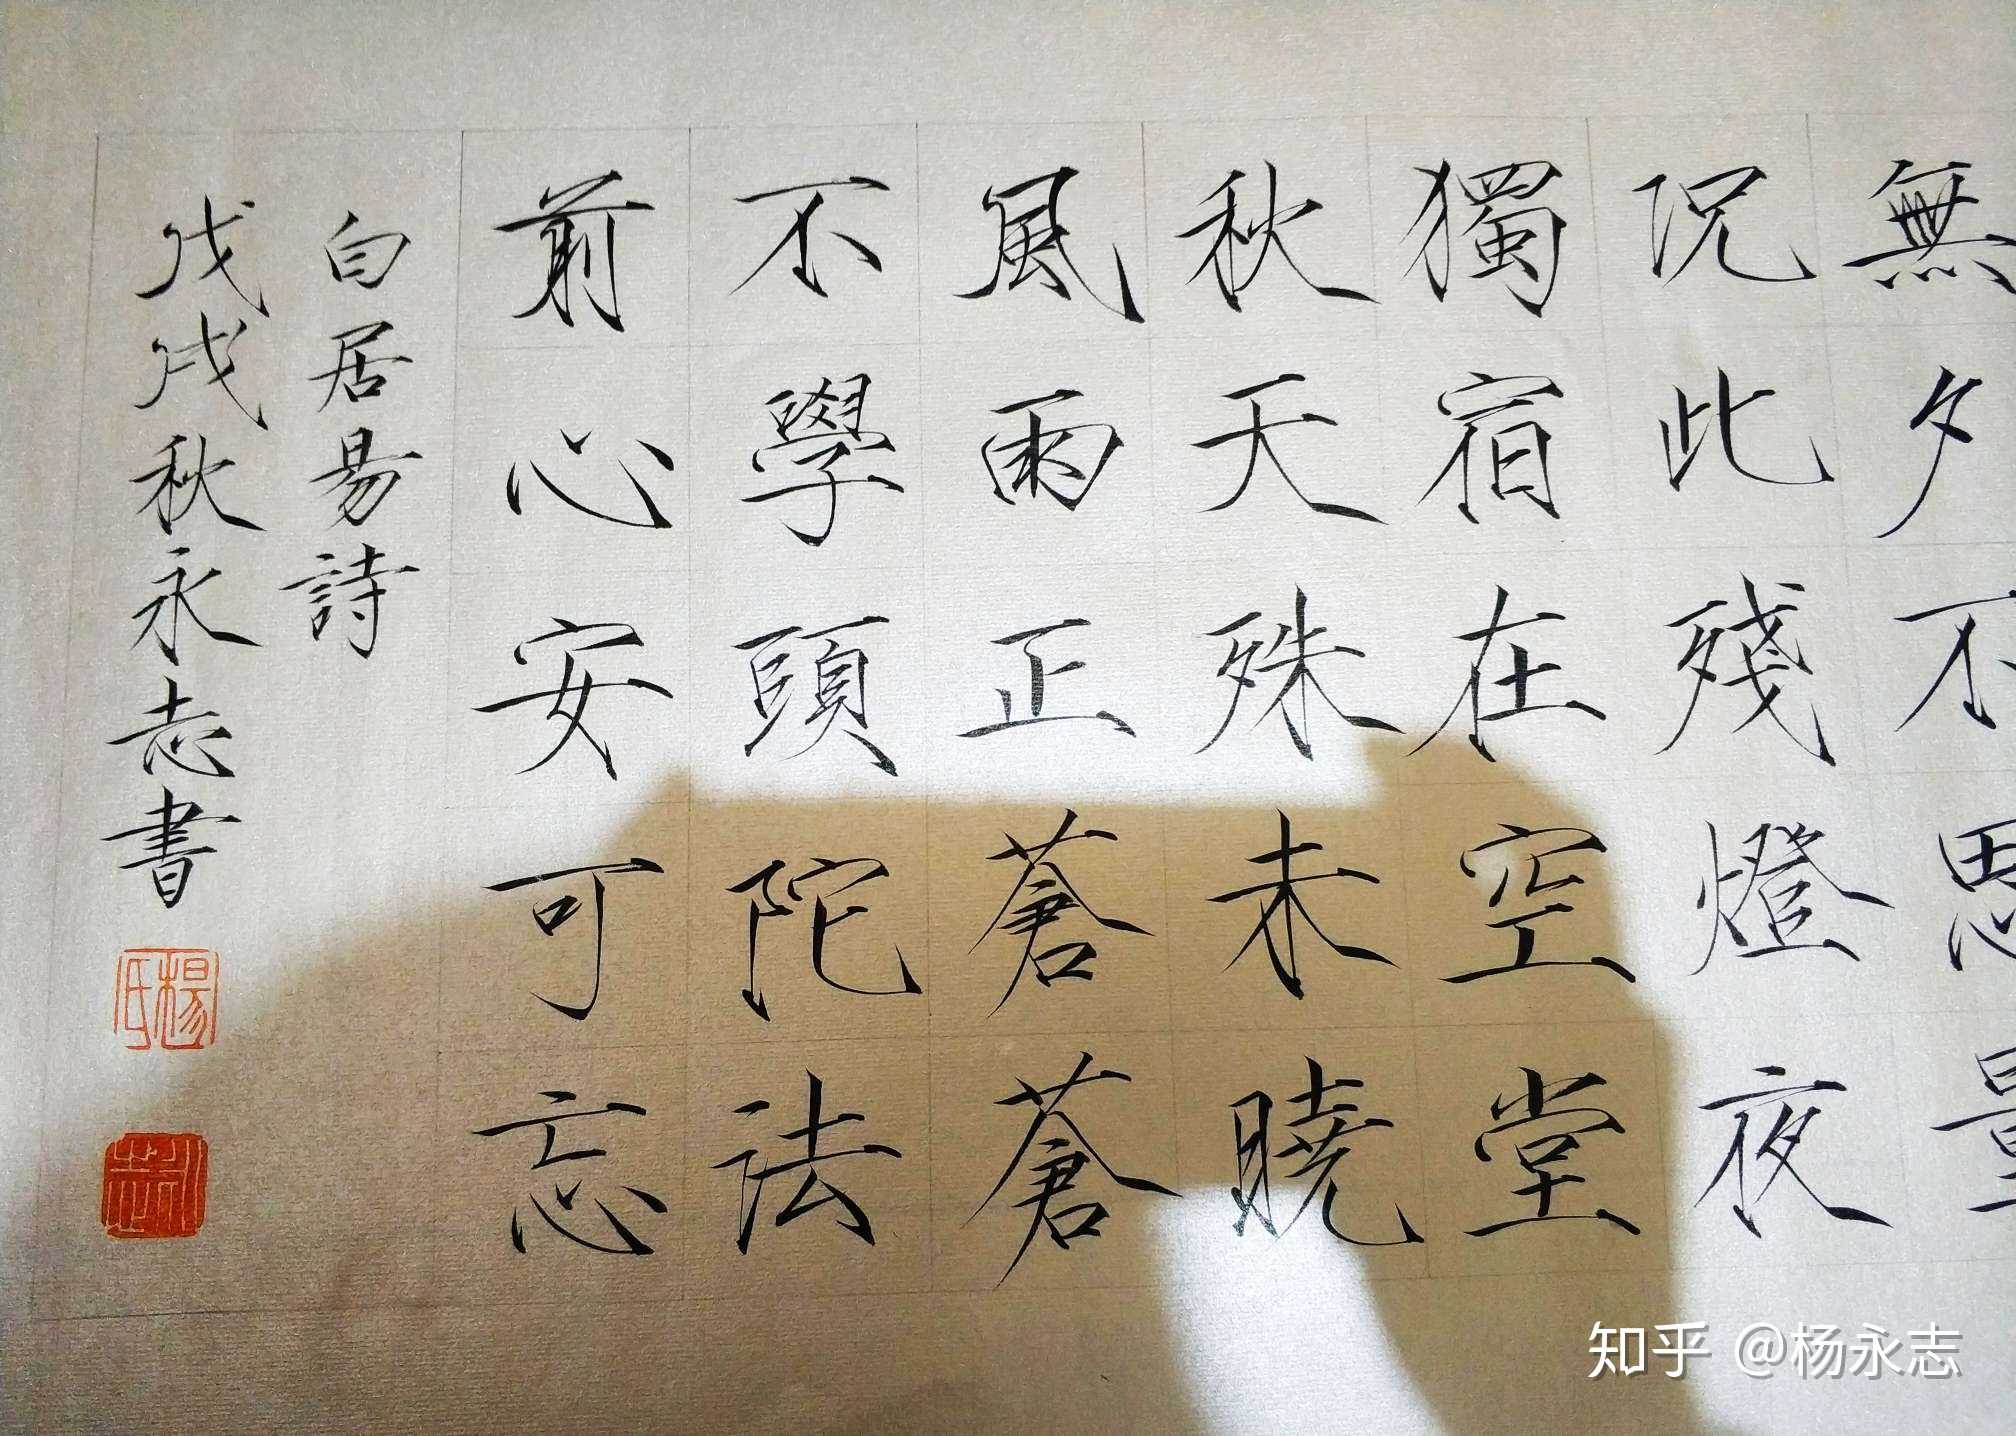 無夕不思量
況此殘燈夜
獨宿在空堂
秋天殊未曉
風雨正蒼蒼
不學頭陀法
前心安可忘
白居易詩
戊戌秋永志書
楊氏
永志
知乎 @杨永志